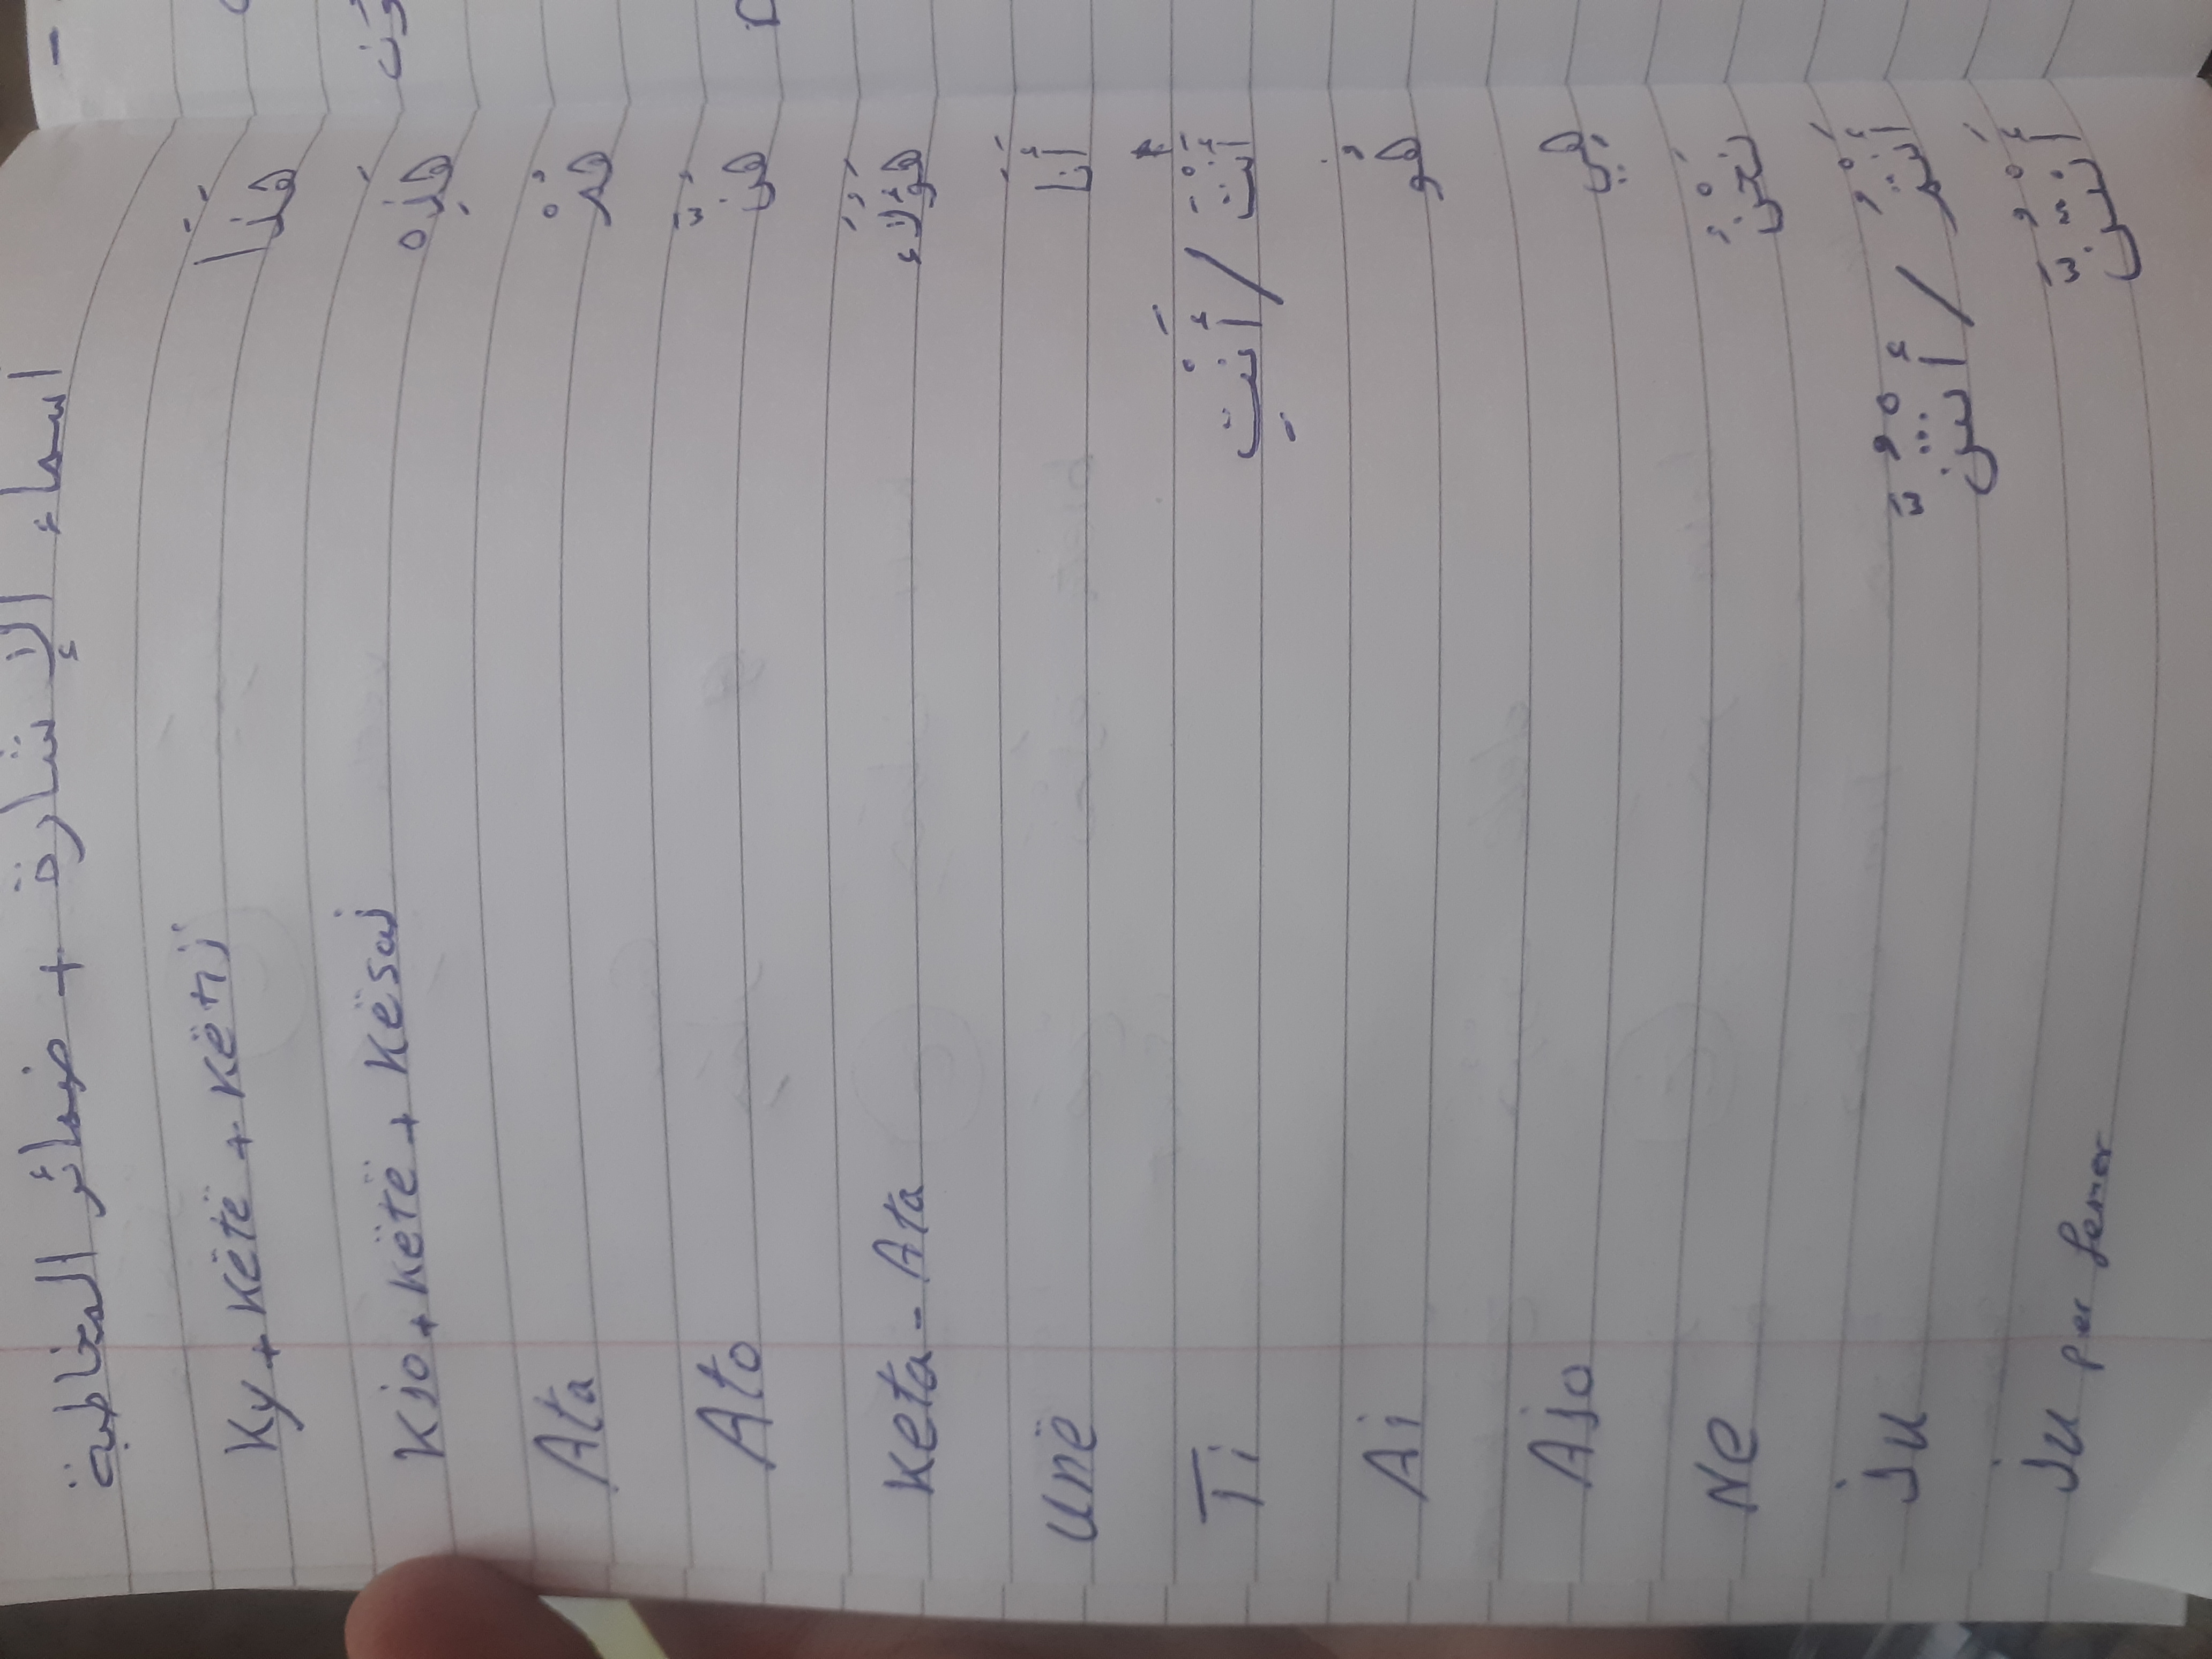 أسماء الإشارة + ضمائر المخاطبة
Ky + Këtë + Këtij هَذَا
Kjo + Këtë + Kësaj هَذِه
Ata هُمْ
Ato هُنَّ
Keta - Ata هَؤُلَاءِ
Unë أَنَا
Ti أَنْتَ / أَنْتِ
Ai هُو
Ajo هِي
Ne نَحْنُ
Ju أَنْتُمْ / أَنْتُنَّ
Ju per femer أَنْتُنَّ